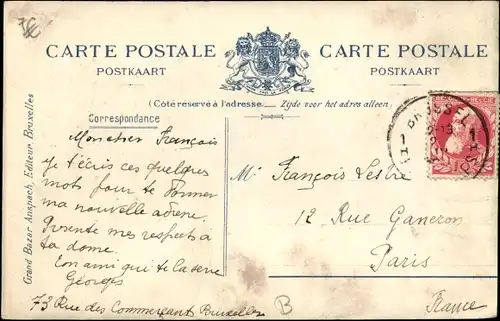 CARTE POSTALE
POSTKAART
CARTE POSTALE
POSTKAART
(Côté réservé à l'adresse. Zijde voor het adres alleen.)
Correspondance
Mon cher François
je t'écris ces quelques
mots pour te donner
ma nouvelle adresse.
Présente mes respects à
ta dame.
Ton ami qui te la serre
Georges
73 Rue des Commerçants Bruxelles
Mr François
12 Rue Ganeron
Paris
France
B
Grand Bazar Anspach, Editeur, Bruxelles